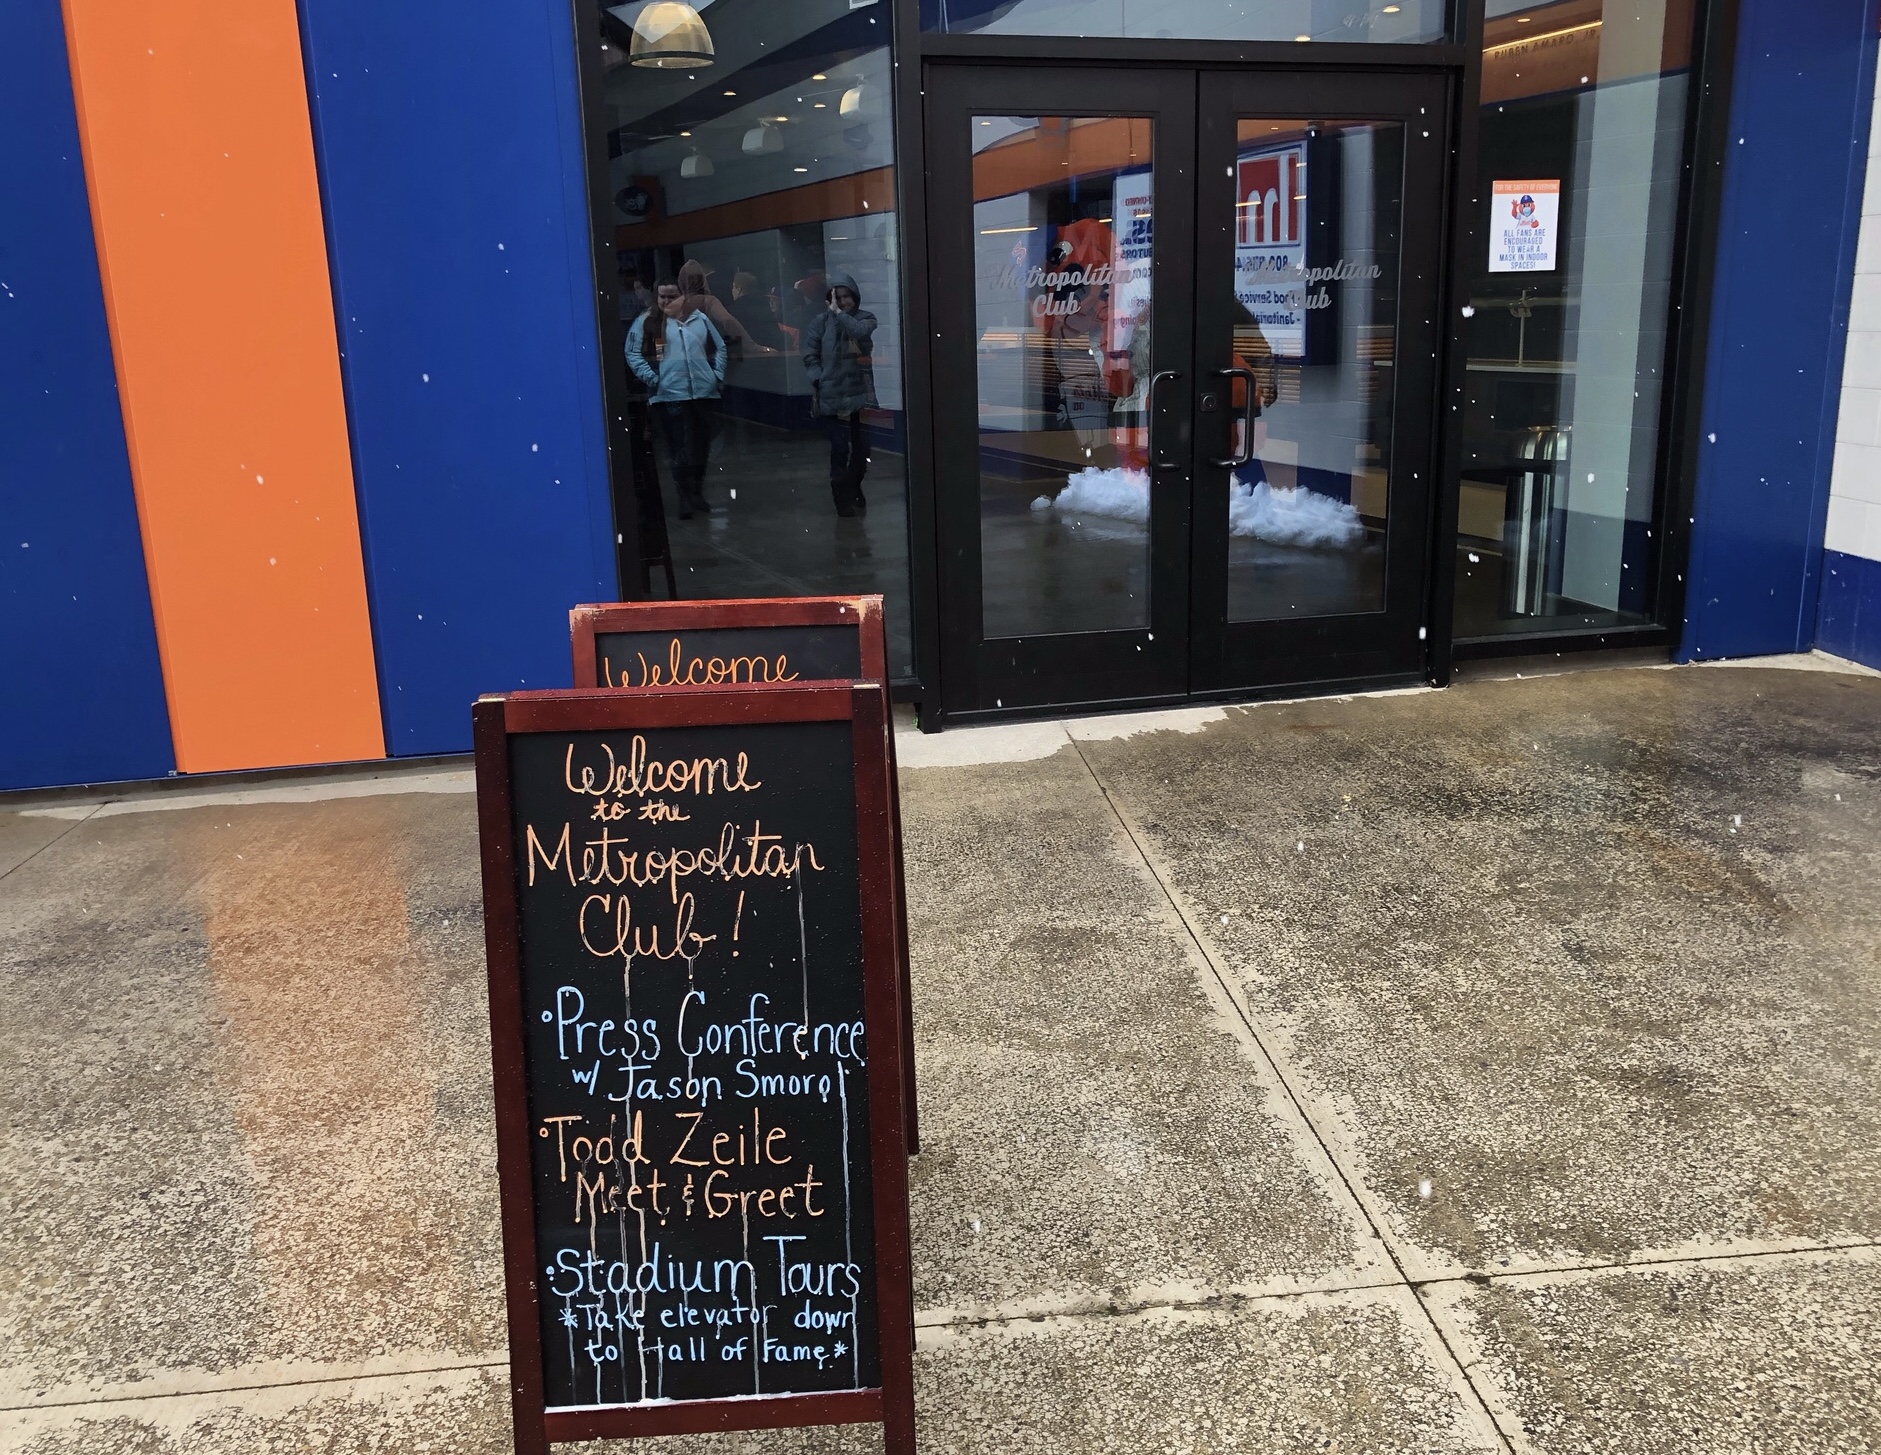 FOR THE SAFETY OF EVERYONE
ALL FANS ARE
ENCOURAGED
TO WEAR A
MASK IN INDOOR
SPACES!
Metropolitan
Club
Welcome
Welcome
to the
Metropolitan
Club!
•Press Conference
w/ Jason Smorol
•Todd Zeile
Meet & Greet
•Stadium Tours
*Take elevator down
to Hall of Fame*